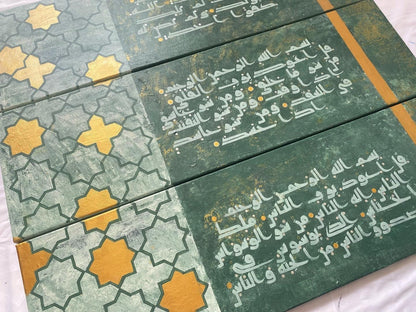 كفوا احد
بسم الله الرحمن الرحيم
قل اعوذ برب الفلق
من شر ما خلق و من شر غاسق
اذا وقب و من شر النفثت
في العقد و من شر حاسد
اذا حسد
بسم الله الرحمن الرحيم
قل اعوذ برب الناس ملك
الناس اله الناس من شر الوسواس
الخناس الذي يوسوس في
صدور الناس من الجنة و الناس